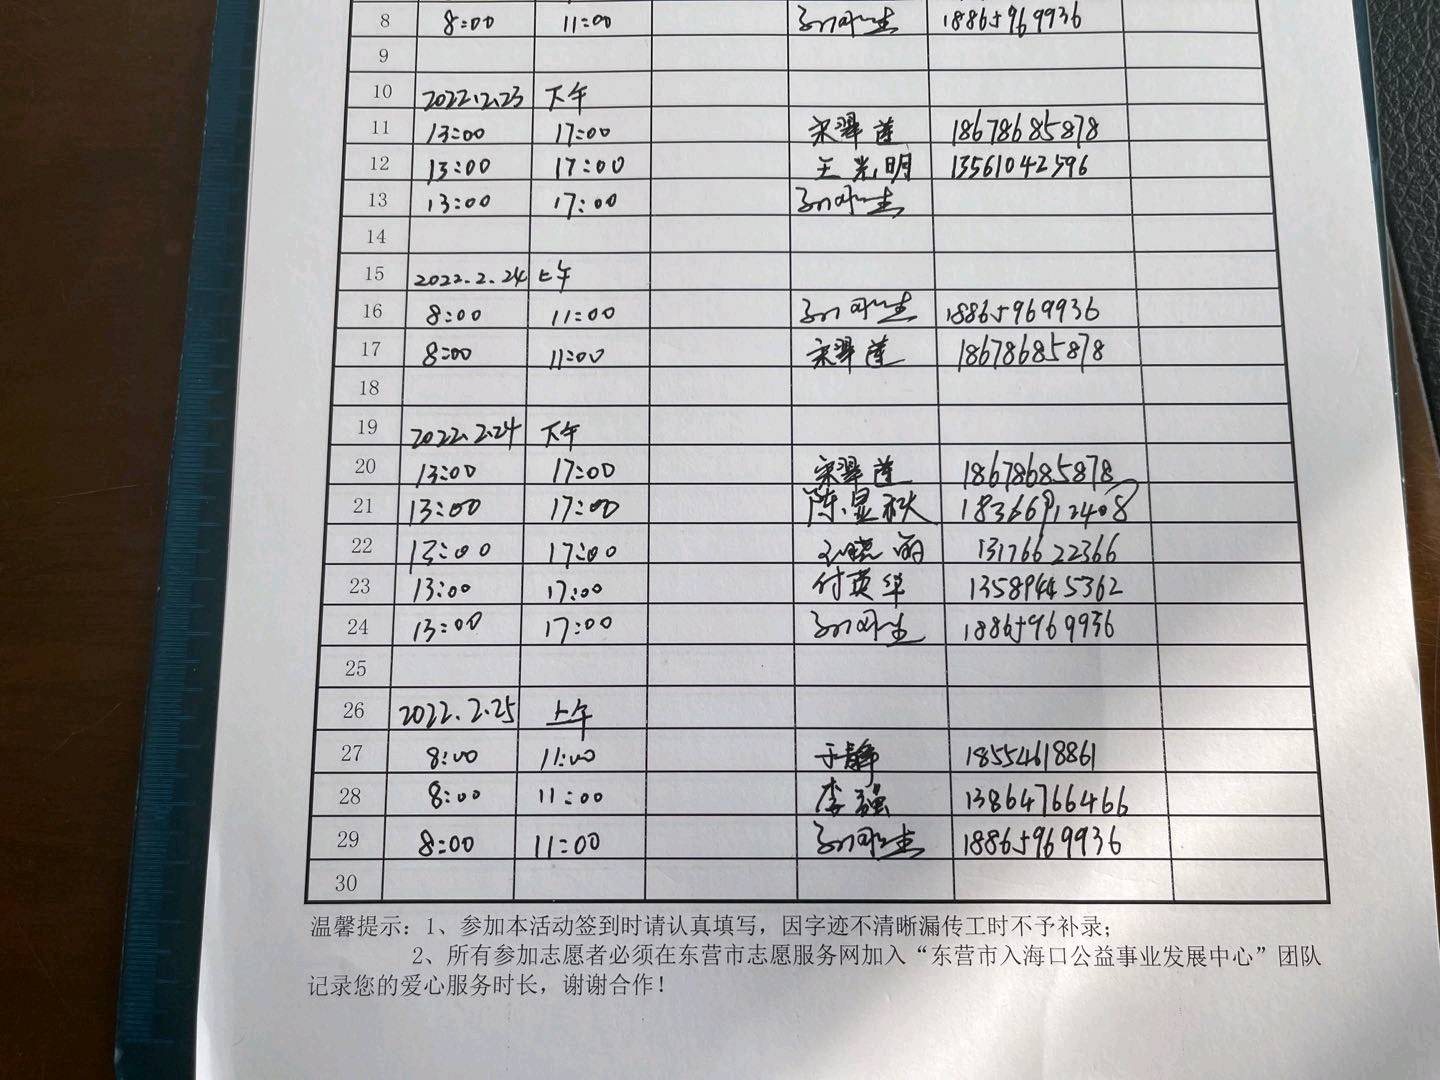 8 8:00 11:00 18865969936
9
10 2022.2.23 下午
11 13:00 17:00 宋翠莲 18678685878
12 13:00 17:00 王光明 13561042596
13 13:00 17:00
14
15 2022.2.24 上午
16 8:00 11:00 18865969936
17 8:00 11:00 宋翠莲 18678685878
18
19 2022.2.24 下午
20 13:00 17:00 宋翠莲 18678685878
21 13:00 17:00 陈显秋 18366912408
22 13:00 17:00 13176622366
23 13:00 17:00 付英华 13589445362
24 13:00 17:00 18865969936
25
26 2022.2.25 上午
27 8:00 11:00 于静 18554618861
28 8:00 11:00 李强 13864766466
29 8:00 11:00 18865969936
30
温馨提示：1、参加本活动签到时请认真填写，因字迹不清晰漏传工时不予补录；
2、所有参加志愿者必须在东营市志愿服务网加入“东营市入海口公益事业发展中心”团队
记录您的爱心服务时长，谢谢合作！